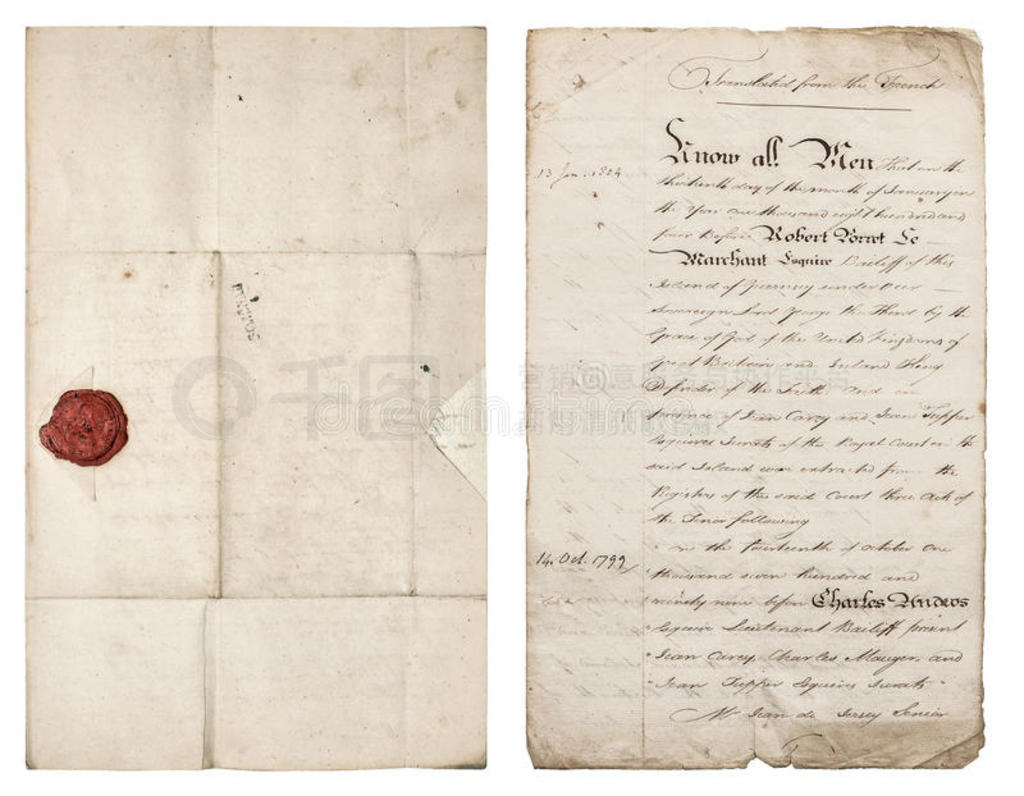 Translated from the French
13 Jan. 1804
Know all Men that on the
thirteenth day of the month of January in
the Year one thousand eight hundred and
four Before Robert Porret Le
Marchant Esquire Bailiff of this
Island of Guernsey under Our
Sovereign Lord George the Third by the
Grace of God of the United Kingdoms of
Great Britain and Ireland King
Defender of the Faith and in
presence of Jean Carey and Jean Tupper
Esquires Jurats of the Royal Court in the
said Island were extracted from the
Registers of the said Court three Acts of
the Tenor following
14. Oct. 1799
" On the fourteenth of October One
" thousand seven hundred and
" ninety nine before Charles Andros
" Esquire Lieutenant Bailiff present
" Jean Carey, Charles Mauger, and
" Jean Tupper Esquires Jurats "
Mr Jean de Jersey Senior
千图
dreamstime